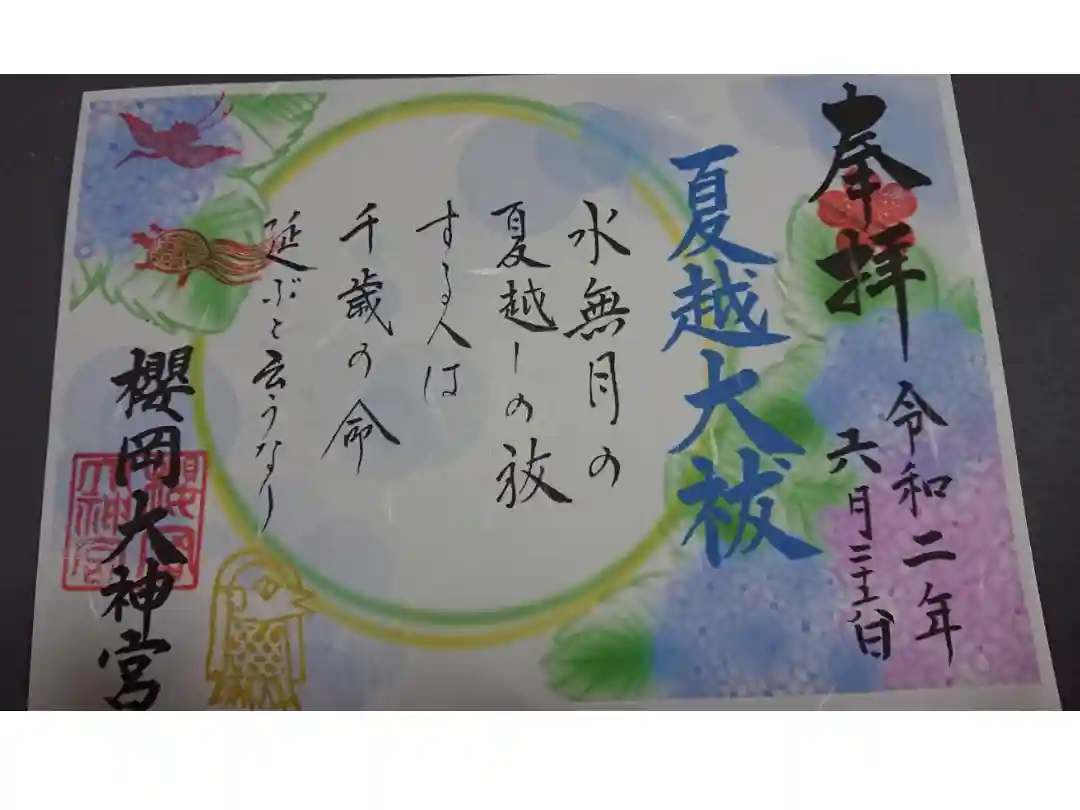 奉拝
令和二年
六月二十八日
夏越大祓
水無月の
夏越しの祓
する人は
千歳の命
延ぶと云うなり
櫻岡大神宮
櫻岡
大神宮